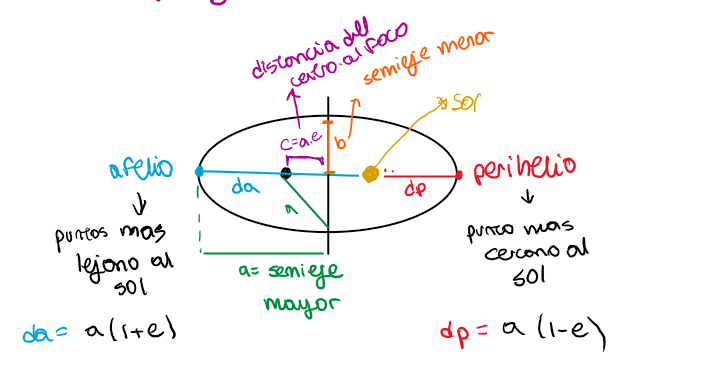 distancia del
centro al foco
semieje menor
sol
c=a.e
b
afelio
da
a
dp
perihelio
puntos mas
lejano al
sol
punto mas
cercano al
sol
a= semieje
mayor
da= a(1+e)
dp= a (1-e)